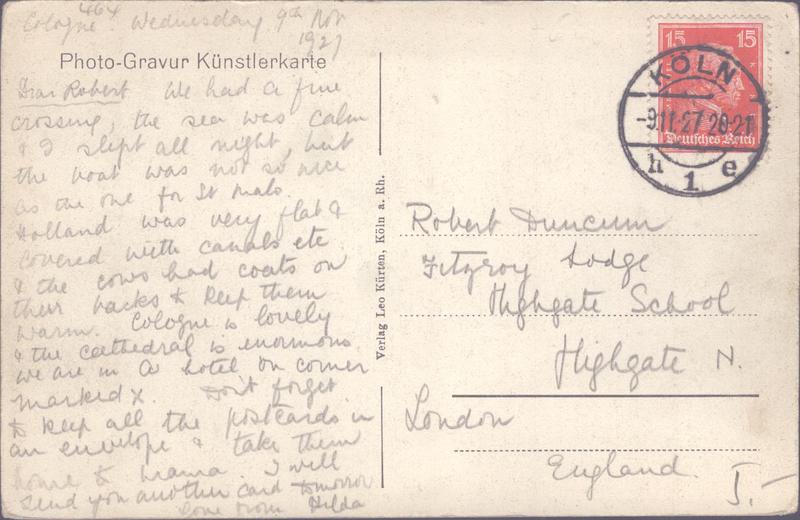 464
Cologne. Wednesday 9th Nov
1927
Photo-Gravur Künstlerkarte
Dear Robert We had a fine
crossing, the sea was calm
& I slept all night, but
the boat was not so nice
as the one for St Malo.
Holland was very flat &
covered with canals etc
& the cows had coats on
their backs to keep them
warm. Cologne is lovely
& the cathedral is enormous
we are in a hotel on corner
marked x. Don't forget
to keep all the postcards in
an envelope & take them
home to mama. I will
send you another card tomorrow
love from Hilda
Verlag Leo Kürten, Köln a. Rh.
15 15
Deutsches Reich
KÖLN
-9.11.27 20-21
h 1 e
Robert Duncum
Fitzroy Lodge
Highgate School
Highgate N.
London
England
I.-